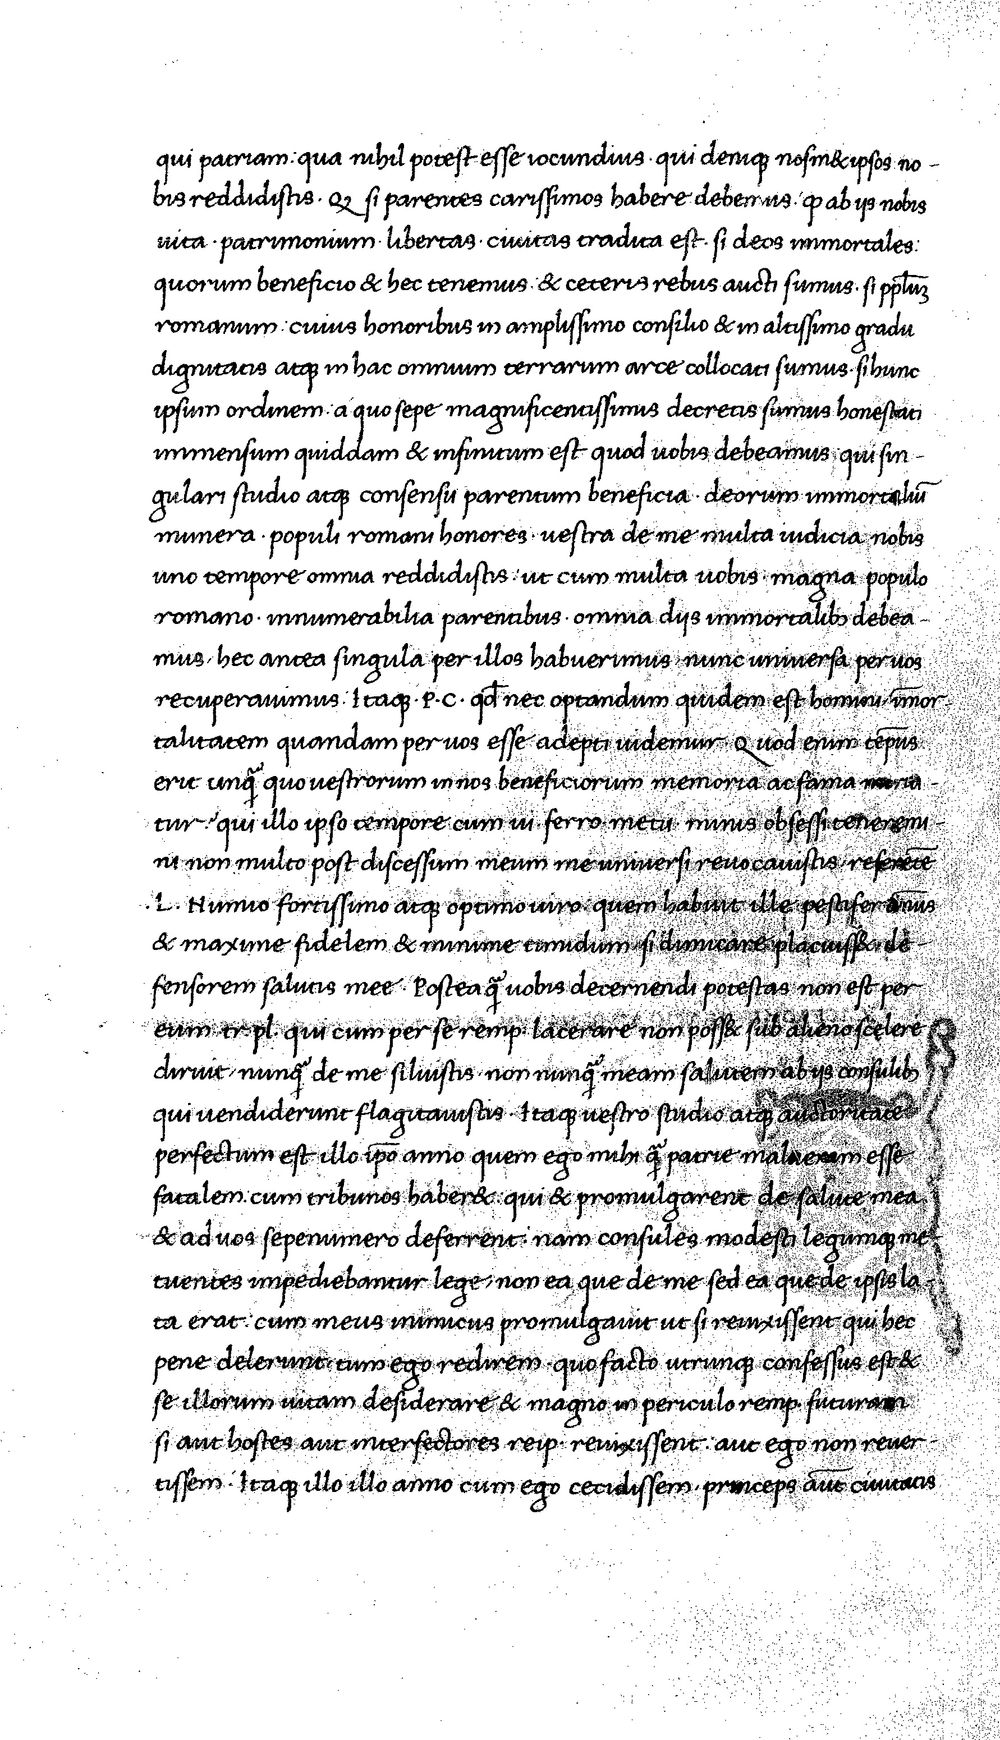 qui patriam: qua nihil potest esse iocundius · qui deniqꝫ nosm&ipsos no-
bis reddidistis · Qꝫ si parentes carissimos habere debemus: ꝙ ab ijs nobis
uita · patrimonium · libertas · ciuitas tradita est · si deos immortales:
quorum beneficio & hec tenemus · & ceteris rebus aucti sumus · si pp̄lūꝫ
romanum: cuius honoribus in amplissimo consilio & in altissimo gradu
dignitatis atqꝫ in hac omnium terrarum arce collocati sumus · si hunc
ipsum ordinem: a quo sepe magnificentissimis decretis sumus honestati
immensum quiddam & infinitum est quod uobis debeamus: qui sin-
gulari studio atqꝫ consensu parentum beneficia · deorum immortaliū
munera · populi romani honores · uestra de me multa iudicia nobis
uno tempore omnia reddidistis: ut cum multa uobis · magna populo
romano · innumerabilia parentibus · omnia dijs immortalibꝫ debea-
mus, hec antea singula per illos habuerimus, nunc uniuersa per uos
recuperauimus. Itaqꝫ · P · C · qd̄ nec optandum quidem est homini, īmor-
talitatem quandam per uos esse adepti uidemur Quod enim tēpus
erit unqᷓ quo uestrorum in nos beneficiorum memoria ac fama moria-
tur: qui illo ipso tempore cum ui ferro metu minis obsessi teneremi-
ni non multo post discessum meum me uniuersi reuocauistis, referēte
· L · Numio fortissimo atqꝫ optimo uiro: quem habuit ille pestifer ānus
& maxime fidelem & minime timidum, si dimicare placuiss& de-
fensorem salutis mee · Posteaqᷓ uobis decernendi potestas non est per
eum tr. pl. qui cum per se remp. lacerare non poss& sub alieno scelere
diruit, nunqᷓ de me siluistis, non nunqᷓ meam salutem ab ijs consulibꝫ
qui uendiderunt flagitauistis · Itaqꝫ uestro studio atqꝫ auctoritate
perfectum est illo ip̄o anno quem ego mihi qᷓ patrie malueram esse
fatalem cum tribunos haber&: qui & promulgarent de salute mea
& ad uos sepenumero deferrent: nam consules modesti legumqꝫ me-
tuentes impediebantur lege, non ea que de me sed ea que de ipsis la-
ta erat: cum meus inimicus promulgauit ut si reuixissent qui hec
pene delerunt: tum ego redirem · quo facto utrunqꝫ confessus est &
se illorum uitam desiderare & magno in periculo remp. futuram
si aut hostes aut interfectores reip. reuixissent: aut ego non reuer-
tissem · Itaqꝫ illo illo anno cum ego cecidissem · princeps aūt ciuitatis